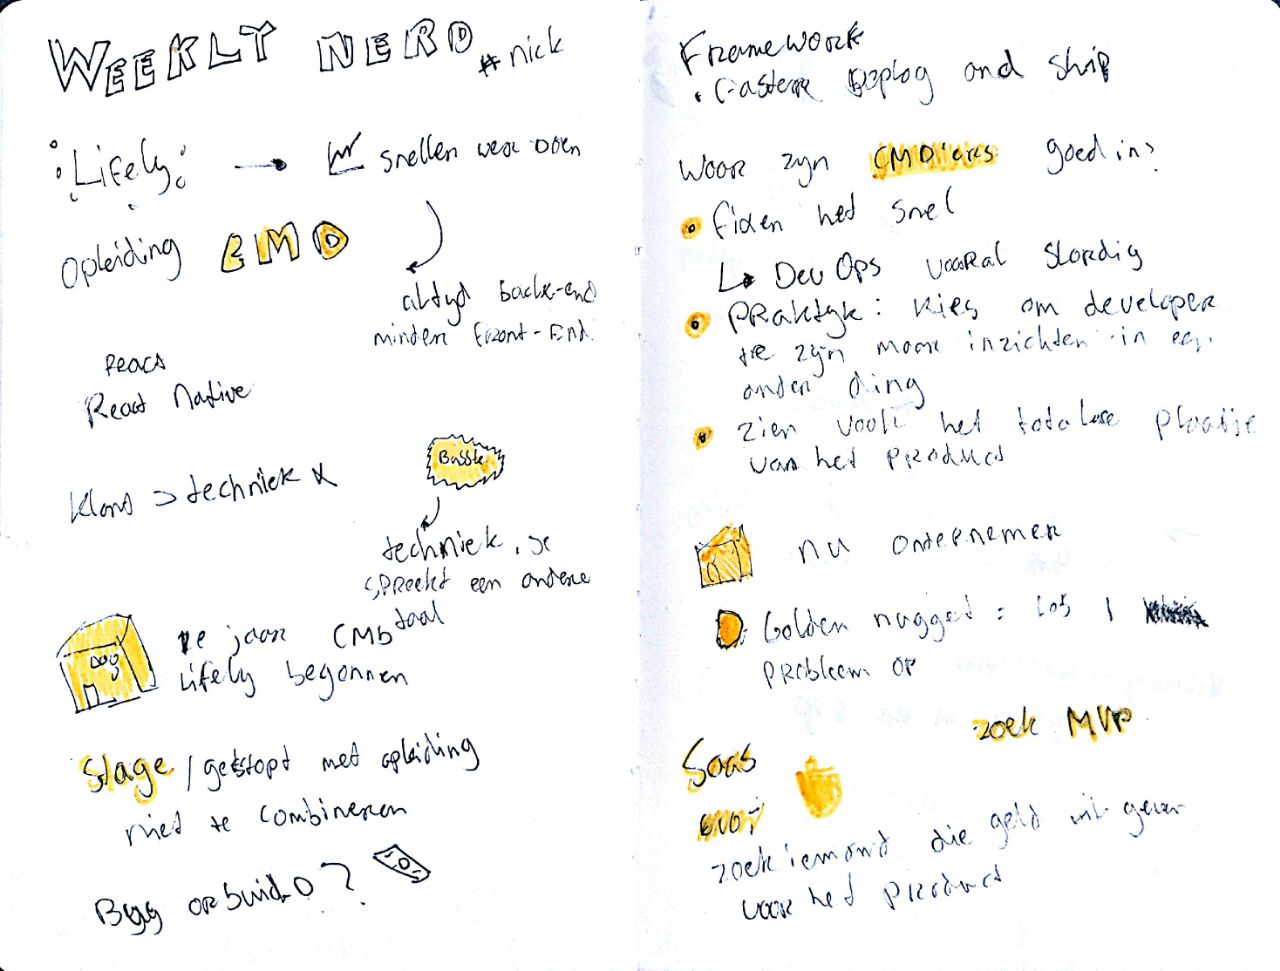 WEEKLY NERD #nick
Lifely → snellen weer doen
Opleiding CMD
altijd back-end
minder front-end.
React
React Native
Klant > techniek
techniek, je
spreekt een andere
taal
1e jaar CMD
Lifely begonnen
Stage / gestopt met opleiding
niet te combineren
Buy or build?
Framework
• Faster and ship
Waar zijn CMD'ers goed in?
fixen het snel
↳ DevOps vooral slordig
Praktijk: Kies om developer
te zijn maar inzichten in een
ander ding
zien vooral het totale plaatje
van het product
nu ondernemer
Golden nugget: los 1
probleem op
zoek MVP
Saas
zoek iemand die geld wil geven
voor het product